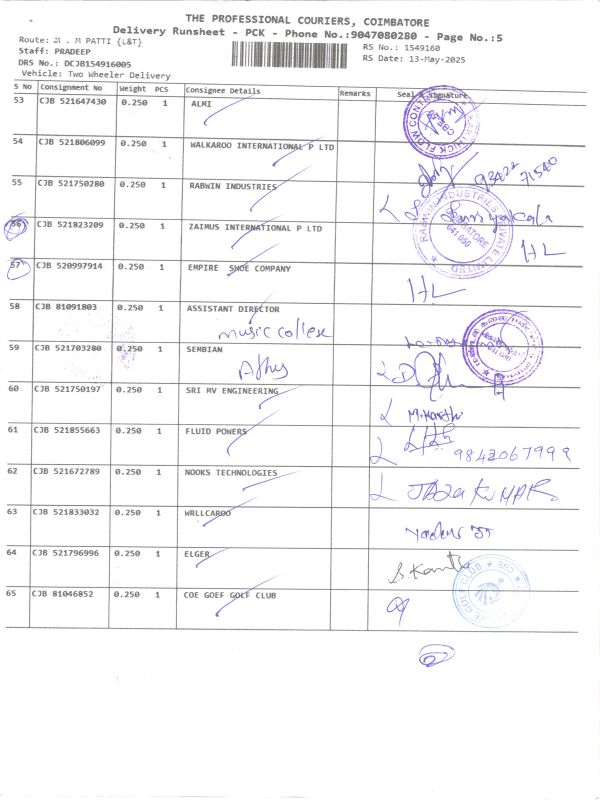 THE PROFESSIONAL COURIERS, COIMBATORE
Delivery Runsheet - PCK - Phone No.:9047080280 - Page No.:5
Route: M . M PATTI {L&T}
RS No.: 1549160
Staff: PRADEEP
RS Date: 13-May-2025
DRS No.: DCJB154916005
Vehicle: Two Wheeler Delivery
S No Consignment No Weight PCS Consignee Details Remarks Seal & Signature
53 CJB 521647430 0.250 1 ALMI
54 CJB 521806099 0.250 1 WALKAROO INTERNATIONAL P LTD
93422 71540
55 CJB 521750280 0.250 1 RABWIN INDUSTRIES
56 CJB 521823209 0.250 1 ZAIMUS INTERNATIONAL P LTD
HL
57 CJB 520997914 0.250 1 EMPIRE SHOE COMPANY
HL
58 CJB 81091803 0.250 1 ASSISTANT DIRECTOR
music college
59 CJB 521703280 0.250 1 SEMBIAN
60 CJB 521750197 0.250 1 SRI MV ENGINEERING
61 CJB 521855663 0.250 1 FLUID POWERS
9842067999
62 CJB 521672789 0.250 1 NOOKS TECHNOLOGIES
63 CJB 521833032 0.250 1 WRLLCAROO
64 CJB 521796996 0.250 1 ELGER
65 CJB 81046852 0.250 1 COE GOEF GOLF CLUB